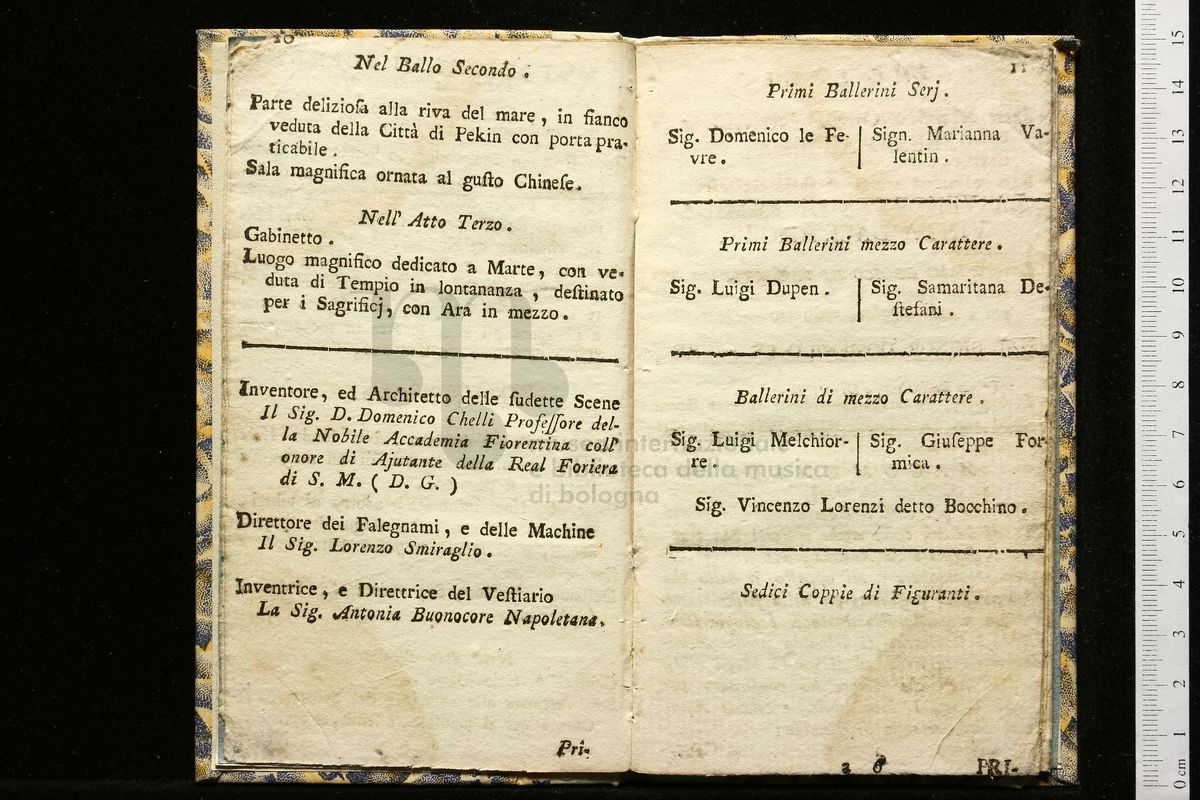 10
Nel Ballo Secondo .
Parte delizioſa alla riva del mare , in fianco
veduta della Città di Pekin con porta pra-
ticabile .
Sala magnifica ornata al guſto Chineſe .
Nell' Atto Terzo .
Gabinetto .
Luogo magnifico dedicato a Marte , con ve-
duta di Tempio in lontananza , deſtinato
per i Sagrificj , con Ara in mezzo .
Inventore , ed Architetto delle ſudette Scene
Il Sig. D. Domenico Chelli Profeſſore del-
la Nobile Accademia Fiorentina coll'
onore di Ajutante della Real Foriera
di S. M. ( D. G. )
Direttore dei Falegnami , e delle Machine
Il Sig. Lorenzo Smiraglio .
Inventrice , e Direttrice del Veſtiario
La Sig. Antonia Buonocore Napoletana .
Pri-
11
Primi Ballerini Serj .
Sig. Domenico le Fe-
vre .
Sign. Marianna Va-
lentin .
Primi Ballerini mezzo Carattere .
Sig. Luigi Dupen .
Sig. Samaritana De-
ſtefani .
Ballerini di mezzo Carattere .
Sig. Luigi Melchior-
re .
Sig. Giuſeppe For-
mica .
Sig. Vincenzo Lorenzi detto Bocchino .
Sedici Coppie di Figuranti .
a 6
PRI-
museo internazionale
e biblioteca della musica
di bologna
0 cm 1 2 3 4 5 6 7 8 9 10 11 12 13 14 15